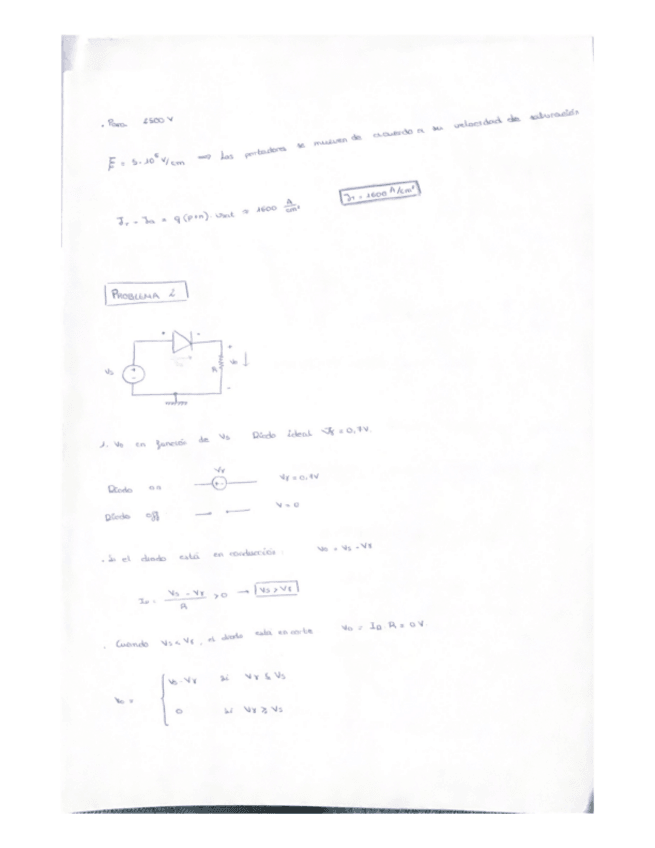 . Para 2500 V
E = 5·10⁶ V/cm ⟹ Los portadores se mueven de acuerdo a su velocidad de saturación
= q (p+n)· = 1600 A/cm²
J_T = 1600 A/cm²
PROBLEMA
Vs + - + R Vo -
1. Vo en función de Vs Diodo ideal Vγ = 0,7V.
Vγ
Diodo on + - Vγ = 0,7V
Diodo off V = 0
. Si el diodo está en conducción: Vo = Vs - Vγ
I_D = (Vs - Vγ)/R > 0 → Vs > Vγ
. Cuando Vs < Vγ, el diodo está en corte Vo = I_D · R = 0 V.
Vo = { Vs - Vγ si Vγ ≤ Vs
0 si Vγ ≥ Vs